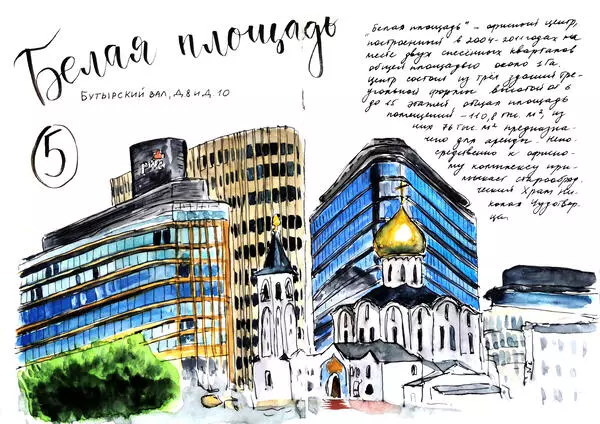 Белая площадь
Бутырский вал, д.8 и д.10
5
pwc
„Белая площадь" - офисный центр,
построенный в 2004-2011 годах на
месте двух снесённых кварталов
общей площадью около 1 Га.
Центр состоит из трёх зданий тре-
угольной формы высотой от 6
до 15 этажей, общая площадь
помещений - 110,8 тыс м², из
них 76 тыс. м² предназна-
чено для аренды. Непо-
средственно к офисно-
му комплексу при-
мыкает старообряд-
ческий Храм Ни-
колая Чудотвор-
ца.